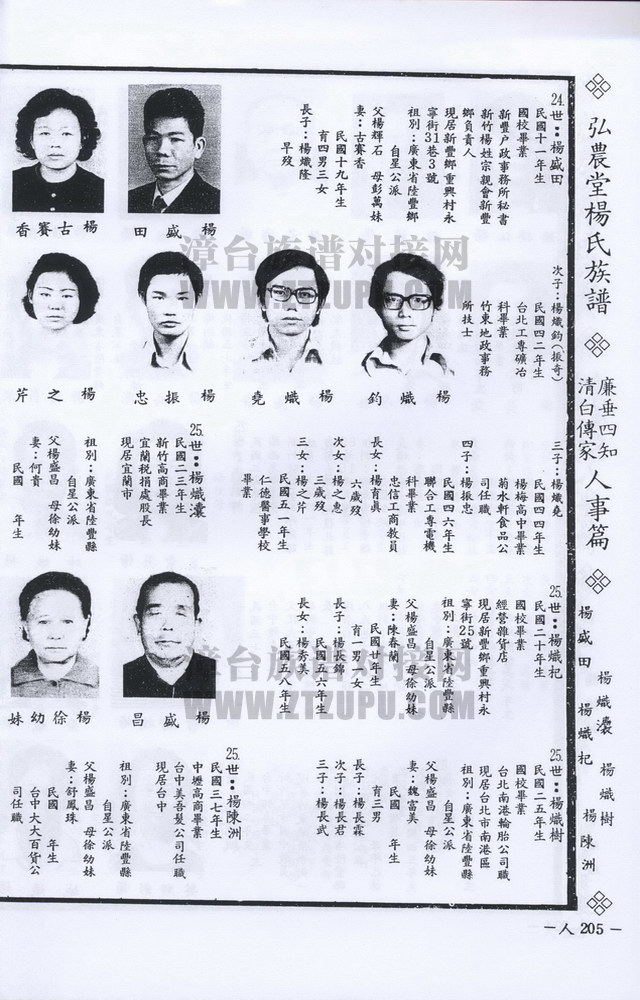 弘農堂楊氏族譜
廉垂四知
清白傳家
人事篇
楊盛田
楊熾瀼
楊熾杞
楊熾樹
楊陳洲
—人205—
24.世：楊盛田
民國十一年生
國校畢業
新豐戶政事務所秘書
新竹楊姓宗親會新豐
鄉負責人
現居新豐鄉重興村永
寧街31巷3號
祖別：廣東省陸豐鄉
自星公派
父楊輝石 母彭萬妹
妻：古賽香
民國十九年生
育四男三女
長子：楊熾隆
早歿
楊盛田
楊古賽香
次子：楊熾鈞(振奇)
民國四二年生
台北工專礦冶
科畢業
竹東地政事務
所技士
楊熾鈞
楊熾堯
楊振忠
楊之芹
三子：楊熾堯
民國四四年生
楊梅高中畢業
菊水軒食品公
司任職
四子：楊振忠
民國四六年生
聯合工專電機
科畢業
忠信工商教員
長女：楊育眞
六歲歿
次女：楊之惠
三歲歿
三女：楊之芹
民國五一年生
仁德醫事學校
畢業
25.世：楊熾瀼
民國二三年生
新竹高商畢業
宜蘭稅捐處股長
現居宜蘭市
祖別：廣東省陸豐縣
自星公派
父楊盛昌 母徐幼妹
妻：何貴
民國 年生
25.世：楊熾杞
民國二十年生
國校畢業
經營雜貨店
現居新豐鄉重興村永
寧街25號
祖別：廣東省陸豐縣
自星公派
父楊盛昌 母徐幼妹
妻：陳春蘭
民國廿年生
育一男一女
長子：楊長錦
民國五六年生
長女：楊秀美
民國五八年生
楊盛昌
楊徐幼妹
25.世：楊熾樹
民國二五年生
國校畢業
台北南港輪胎公司職
現居台北市南港區
祖別：廣東省陸豐縣
自星公派
父楊盛昌 母徐幼妹
妻：魏富美
民國 年生
育三男
長子：楊長霖
次子：楊長君
三子：楊長武
25.世：楊陳洲
民國三七年生
中壢高商畢業
台中美吾髮公司任職
現居台中
祖別：廣東省陸豐縣
自星公派
父楊盛昌 母徐幼妹
妻：舒鳳珠
民國 年生
台中大大百貨公
司任職
漳台族谱对接网
WWW.ZTZUPU.COM
漳台族谱对接网
WWW.ZTZUPU.COM